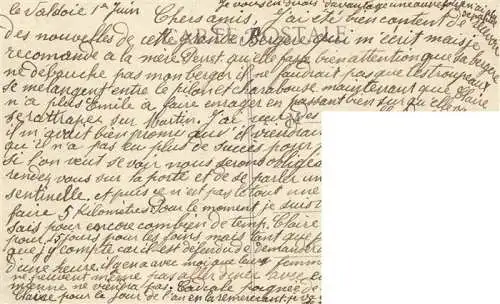 le Valdoie 1er Juin Chers amis, J'ai été bien content de
Je vous en dirais davantage une autre fois
des nouvelles de cette grande Bergère qui m'écrit mais je
CARTE POSTALE
recomande à la mère qu'elle fasse bien attention que la bergère
ne débauche pas mon berger il ne faudrait pas que les troupeaux
se mélangent entre le pilon et charabouse maintenant que Claire
n'a plus Emile a faire enrager en passant bien sur qu'elle
se rattraper sur Martin. J'ai
il m'avait bien promis qu'il viendrait
qu'il n'a pas eu plus de succes pour
si l'on veut se voir nous serons obligés
rendez vous sur la porte et de se parler
sentinelle, et puis ce n'est pas le tout une
faire 5 kilomètres Pour le moment je suis
sais pour encore combien de temp. Claire
pour 15 jours pour les foins mais
que j'y compte car il est défendu de
d'une heure. il y en a avec moi que leur femme
ne peuvent même pas avec
mienne ne viendra pas. poignée de
Claire pour la jour de l'an en la remerciant